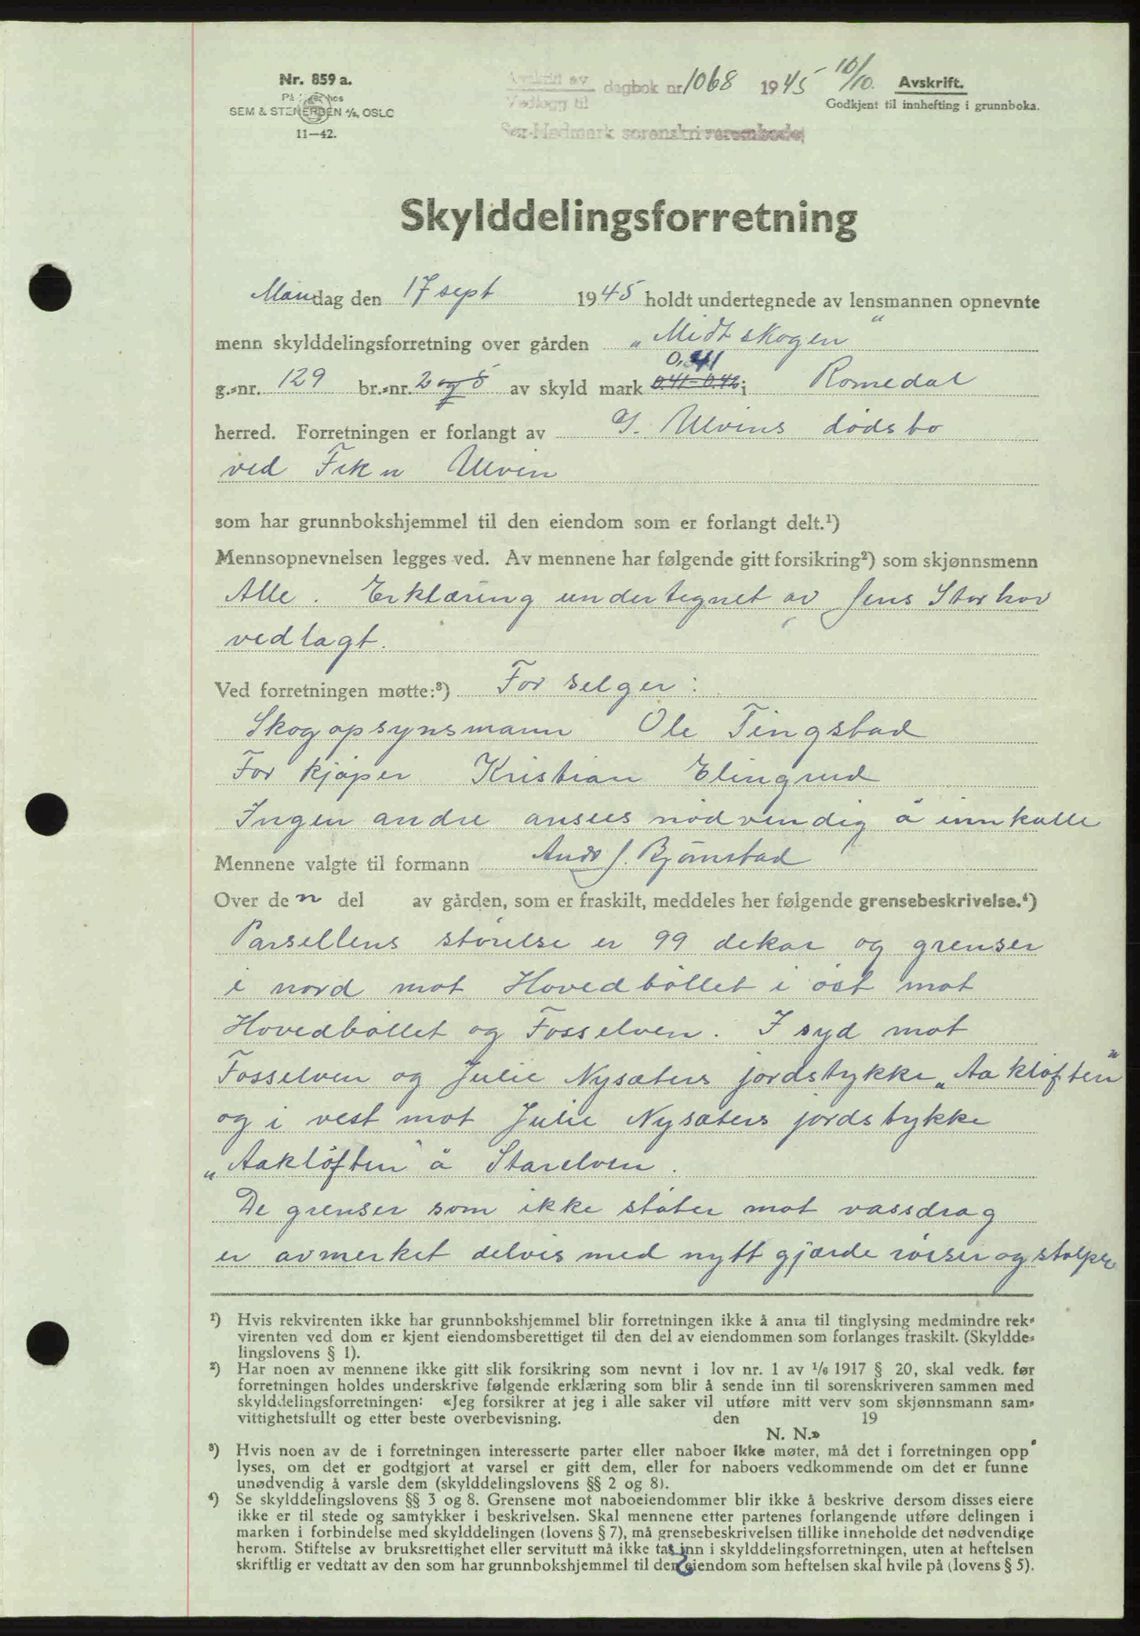 Nr. 859 a.
På lager hos
SEM & STENERSEN A/S, OSLO
11—42.
Avskrift av
Vedlegg til
dagbok nr 1068 1945 10/10.
Sør-Hedmark sorenskriverembede
Avskrift.
Godkjent til innhefting i grunnboka.
Skylddelingsforretning
Mandag den 17 sept 1945 holdt undertegnede av lensmannen opnevnte
menn skylddelingsforretning over gården „Midtskogen"
0,41
g.-nr. 129 br.-nr. 2 og 5 av skyld mark 0.41-0.42 i Romedal
herred. Forretningen er forlangt av G. Ulvins dødsbo
ved Frk n Ulvin
som har grunnbokshjemmel til den eiendom som er forlangt delt.¹)
Mennsopnevnelsen legges ved. Av mennene har følgende gitt forsikring²) som skjønnsmenn
Alle. Erklæring undertegnet av Jens Storhov
vedlagt.
Ved forretningen møtte:³) For selger:
Skogopsynsmann Ole Tingstad
For kjøper Kristian Elingrud
Ingen andre ansees nødvendig å innkalle
Mennene valgte til formann Ands J. Bjørnstad
Over den del av gården, som er fraskilt, meddeles her følgende grensebeskrivelse.⁴)
Parsellens størelse er 99 dekar og grenser
i nord mot Hovedbøllet i øst mot
Hovedbøllet og Fosselven. I syd mot
Fosselven og Julie Nysæters jordstykke „Aakløften"
og i vest mot Julie Nysæters jordstykke
„Aakløften" å Starelven.
De grenser som ikke støter mot vassdrag
er avmerket delvis med nytt gjærde røiser og stolper
¹) Hvis rekvirenten ikke har grunnbokshjemmel blir forretningen ikke å anta til tinglysing medmindre rek-
virenten ved dom er kjent eiendomsberettiget til den del av eiendommen som forlanges fraskilt. (Skyldde-
lingslovens § 1).
²) Har noen av mennene ikke gitt slik forsikring som nevnt i lov nr. 1 av 1/6 1917 § 20, skal vedk. før
forretningen holdes underskrive følgende erklæring som blir å sende inn til sorenskriveren sammen med
skylddelingsforretningen: «Jeg forsikrer at jeg i alle saker vil utføre mitt verv som skjønnsmann sam-
vittighetsfullt og etter beste overbevisning. den 19
N. N.»
³) Hvis noen av de i forretningen interesserte parter eller naboer ikke møter, må det i forretningen opp-
lyses, om det er godtgjort at varsel er gitt dem, eller for naboers vedkommende om det er funne
unødvendig å varsle dem (skylddelingslovens §§ 2 og 8).
⁴) Se skylddelingslovens §§ 3 og 8. Grensene mot naboeiendommer blir ikke å beskrive dersom disses eiere
ikke er til stede og samtykker i beskrivelsen. Skal mennene etter partenes forlangende utføre delingen i
marken i forbindelse med skylddelingen (lovens § 7), må grensebeskrivelsen tillike inneholde det nødvendige
herom. Stiftelse av bruksrettighet eller servitutt må ikke tas inn i skylddelingsforretningen, uten at heftelsen
skriftlig er vedtatt av den som har grunnbokshjemmel til den eiendom som heftelsen skal hvile på (lovens § 5).